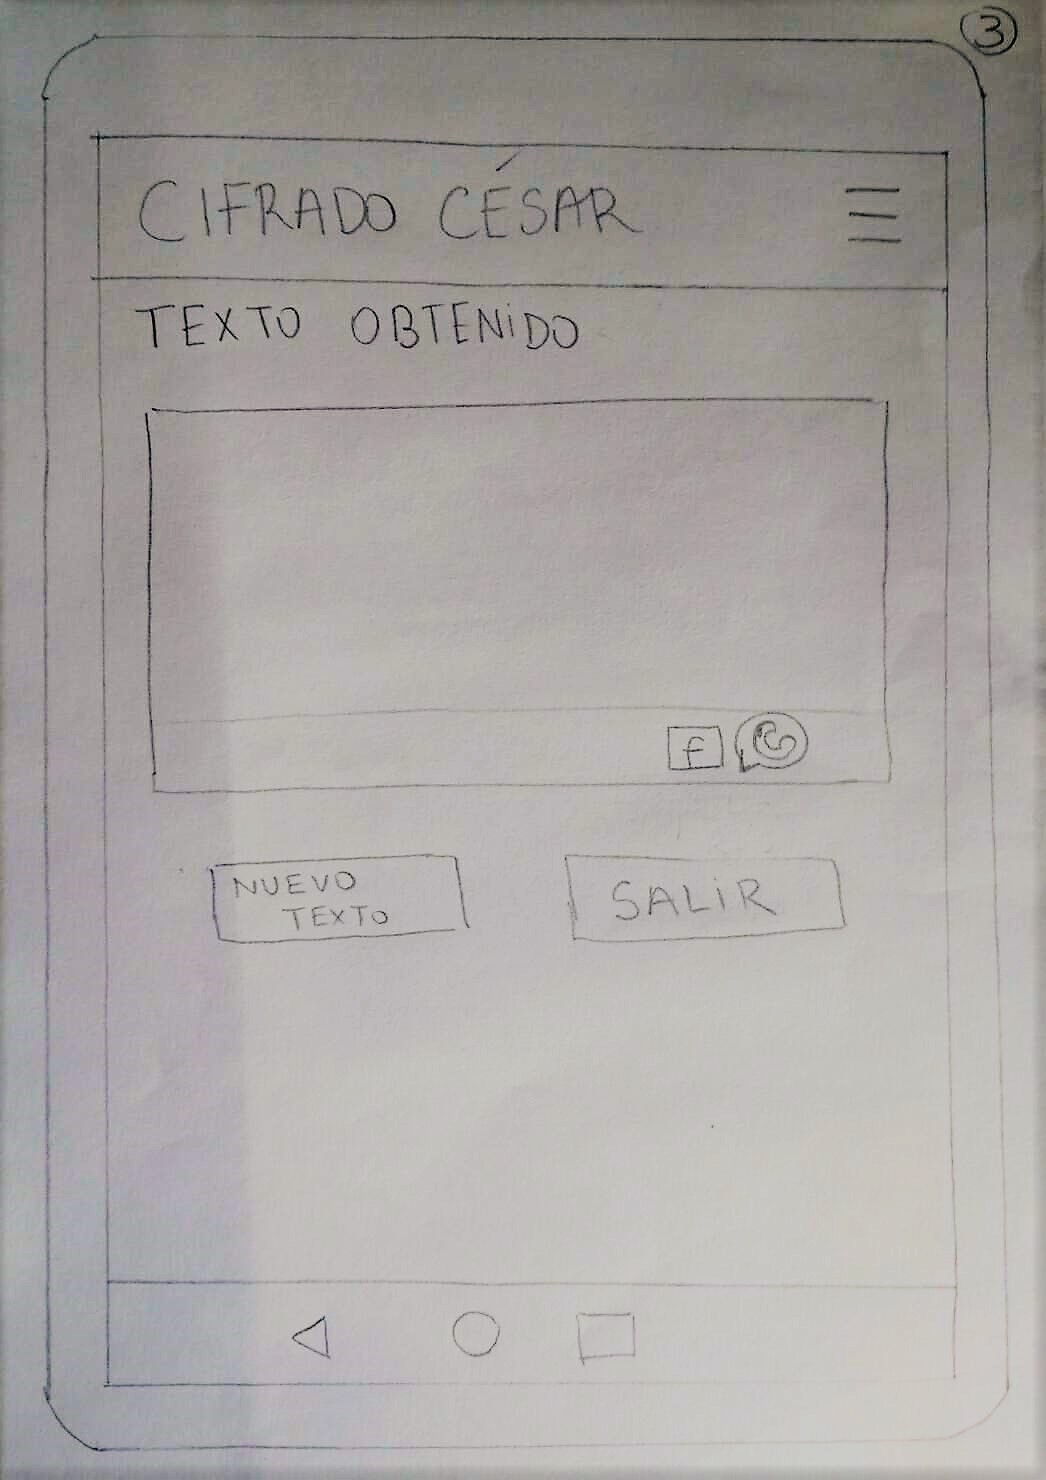 3
CIFRADO CÉSAR
TEXTO OBTENIDO
f
NUEVO
TEXTO
SALIR